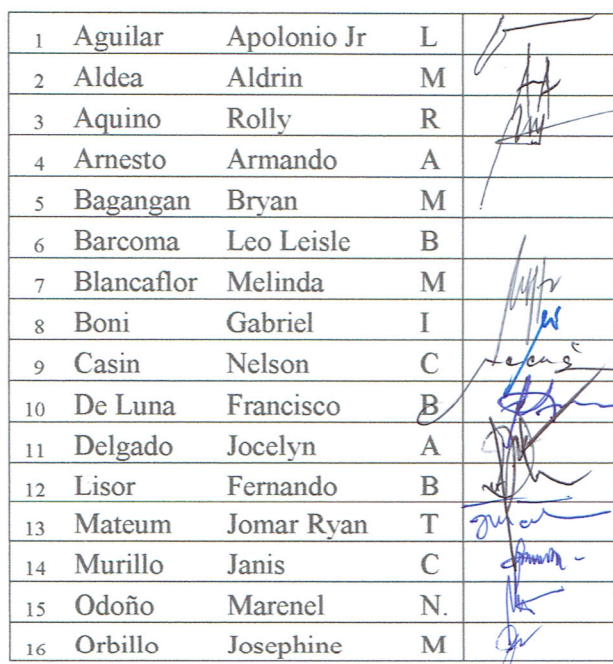 1 Aguilar Apolonio Jr L
2 Aldea Aldrin M
3 Aquino Rolly R
4 Arnesto Armando A
5 Bagangan Bryan M
6 Barcoma Leo Leisle B
7 Blancaflor Melinda M
8 Boni Gabriel I
9 Casin Nelson C
10 De Luna Francisco B
11 Delgado Jocelyn A
12 Lisor Fernando B
13 Mateum Jomar Ryan T
14 Murillo Janis C
15 Odoño Marenel N.
16 Orbillo Josephine M